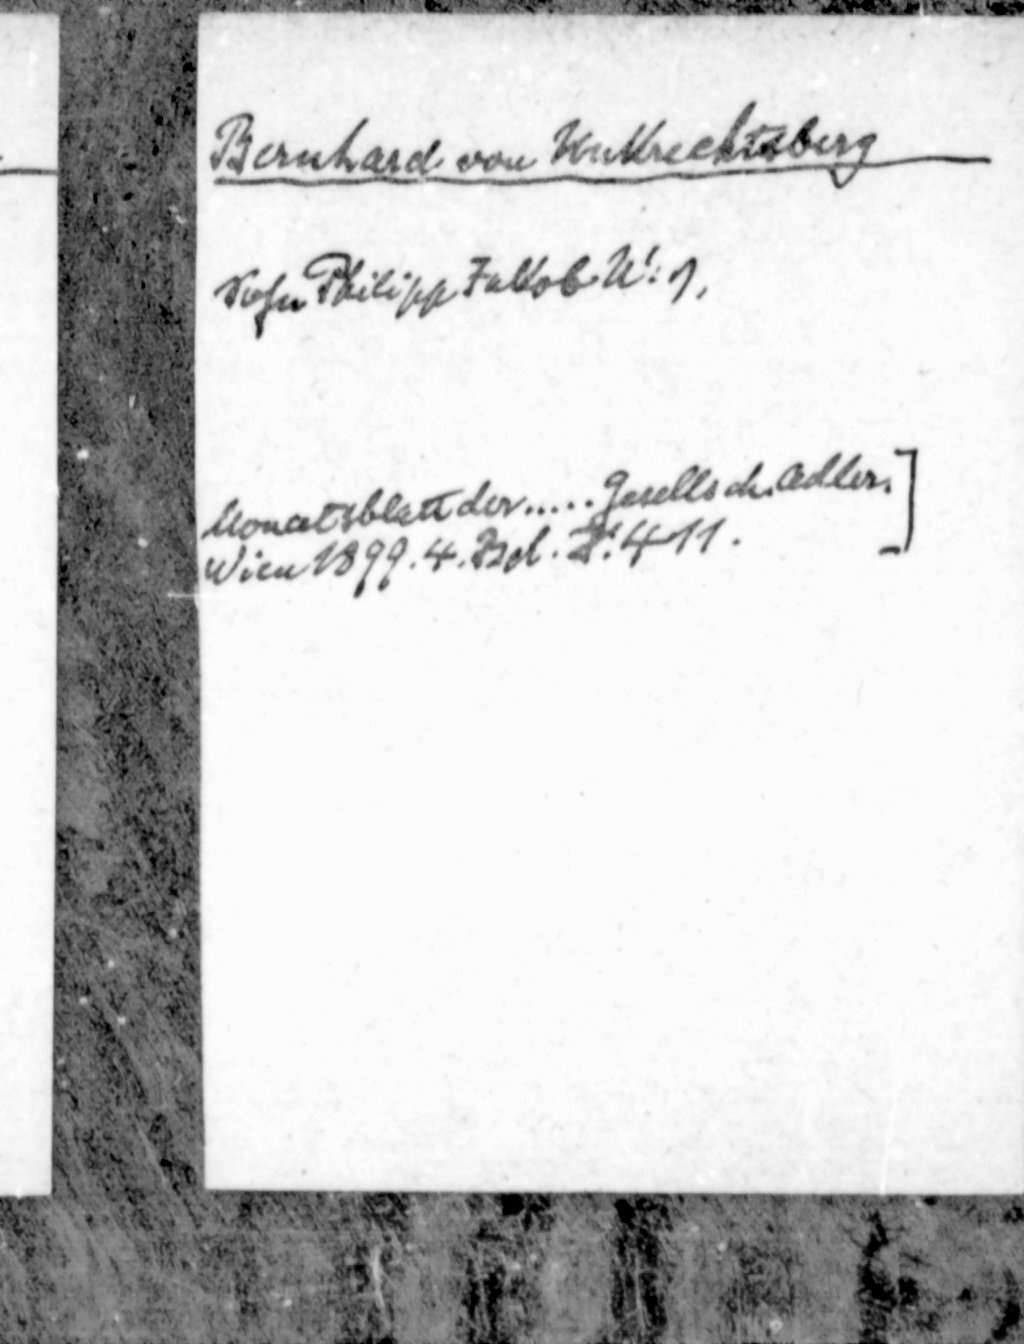 Bernhard von Unkrechtsberg
Sohn Philipp Jakob U! 1,
Monatsblatt der ..... Gesellsch. Adler.
Wien 1899. 4. Bd. S. 411.